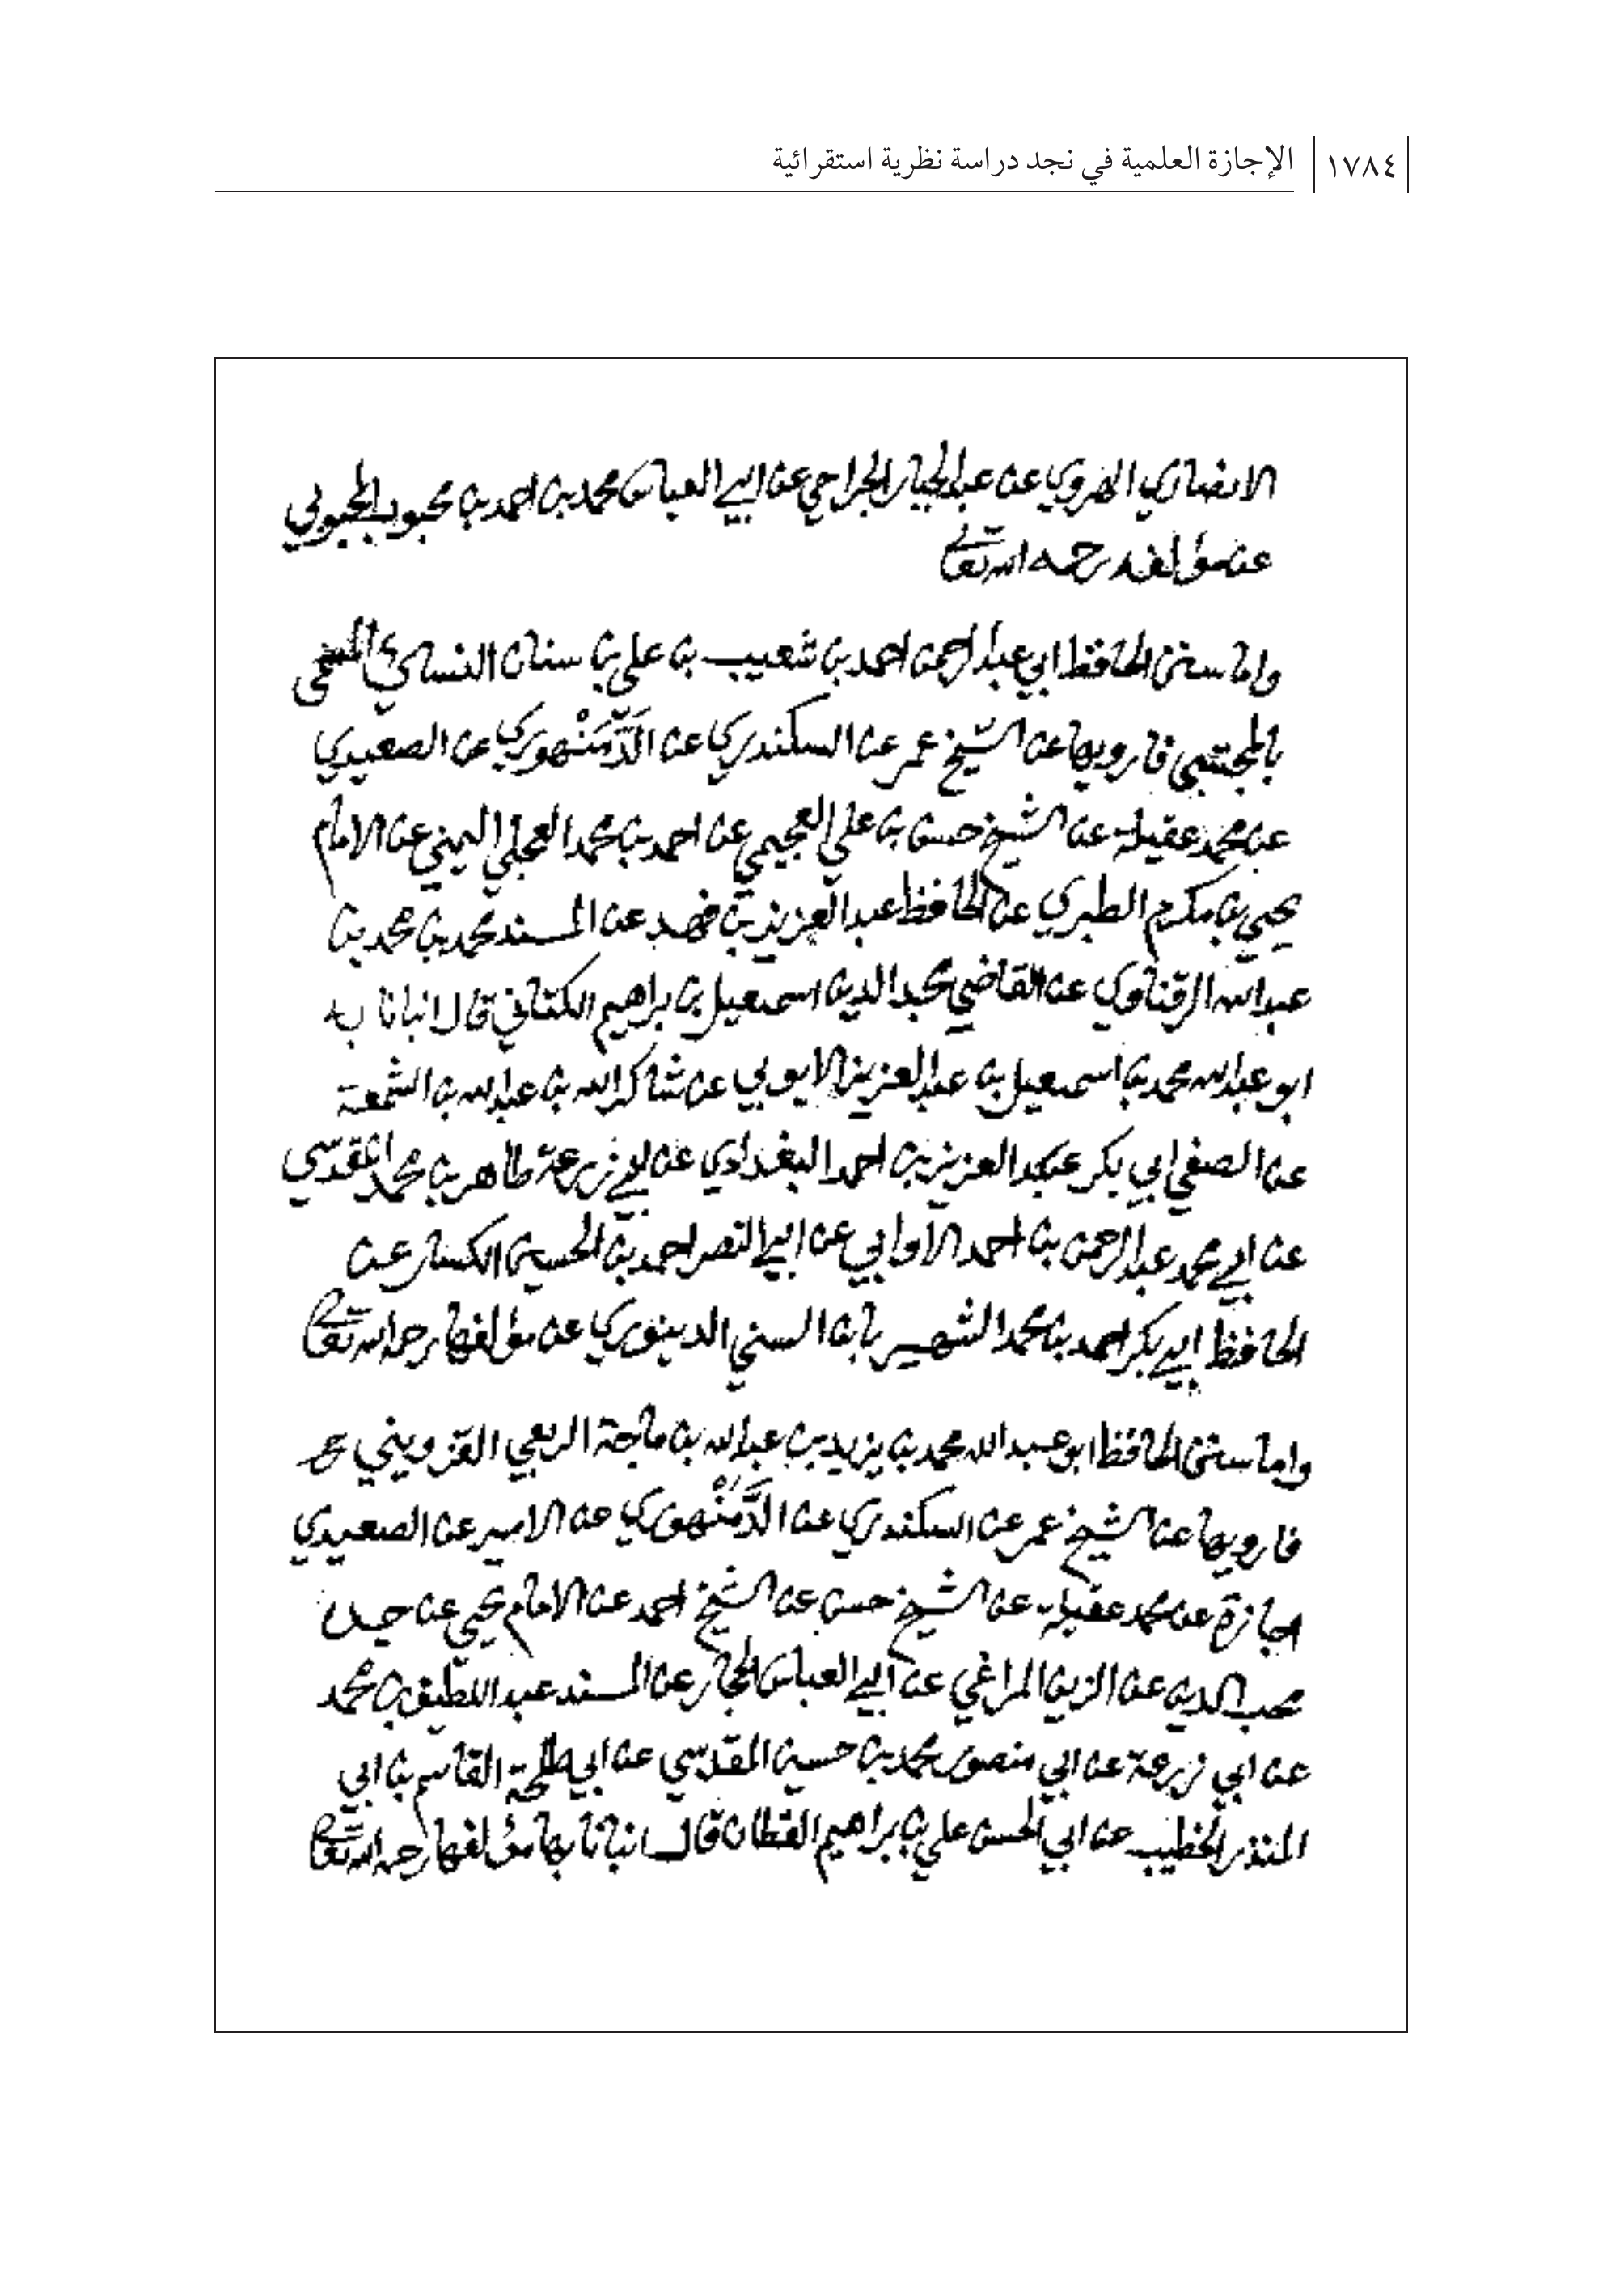 ١٧٨٤ الإجازة العلمية في نجد دراسة نظرية استقرائية
الانصاري الهروي عن عبد الجبار الجراحي عن ابي العباس محمد بن احمد بن محبوب المحبوبي
عن مؤلفه رحمه الله تعالى
واما سنن الحافظ ابي عبد الرحمن احمد بن شعيب بن علي بن سنان النساي المسمى
بالمجتبى فارويها عن الشيخ عمر عن السكندري عن الدَّمَنْهوري عن الصعيدي
عن محمد عقيلة عن الشيخ حسن بن علي العجيمي عن احمد بن محمد العجلي اليمني عن الامام
يحيى بن مكرم الطبري عن الحافظ عبد العزيز بن فهد عن المسند محمد بن محمد بن
عبد الله الزفتاوي عن القاضي مجد الدين اسمعيل بن ابراهيم الكناني قال انبانا به
ابو عبد الله محمد بن اسمعيل بن عبد العزيز الايوبي عن شاكر الله بن عبد الله بن الشمعة
عن الصفي ابي بكر عبد العزيز بن احمد البغدادي عن ابي زرعة طاهر بن محمد المقدسي
عن ابي محمد عبد الرحمن بن احمد ال عن ابي النصر احمد بن الحسين الكسار عن
الحافظ ابي بكر احمد بن محمد الشهير بابن السني الدينوري عن مؤلفها رحمه الله تعالى
واما سنن الحافظ ابو عبد الله محمد بن يزيد بن عبد الله بن ماجة الربعي القزويني
فارويها عن الشيخ عمر عن السكندري عن الدَّمَنْهوري عن الامير عن الصعيدي
اجازة عن محمد عقيلة عن الشيخ حسن عن الشيخ احمد عن الامام يحيى عن جده
محب الدين عن الزين المراغي عن ابي العباس الحجار عن المسند عبد اللطيف بن محمد
عن ابي زرعة عن ابي منصور محمد بن حسين المقدسي عن ابي طلحة القاسم بن ابي
المنذر الخطيب عن ابي الحسن علي بن ابراهيم القطان قال انبانا بها مؤلفها رحمه الله تعالى